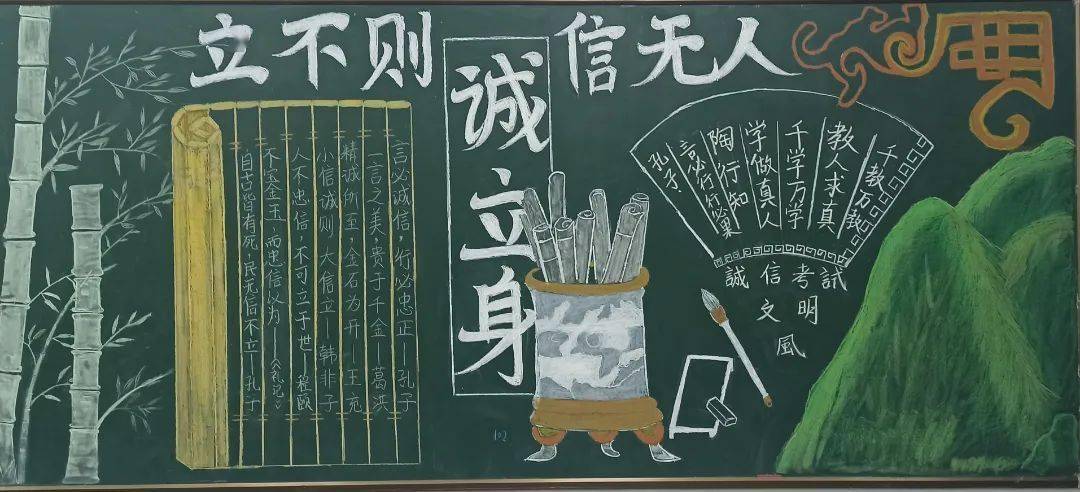 人无信则不立
誠立身
言必诚信，行必忠正—孔子
一言之美，贵于千金—葛洪
精诚所至，金石为开—王充
小信诚则大信立—韩非子
人不忠信，不可立于世—程颐
不宝金玉，而忠信以为—《礼记》
自古皆有死，民无信不立—孔子
千教万教
教人求真
千学万学
学做真人
陶行知
言必行行必果
孔子
誠信考試
文明
風
102